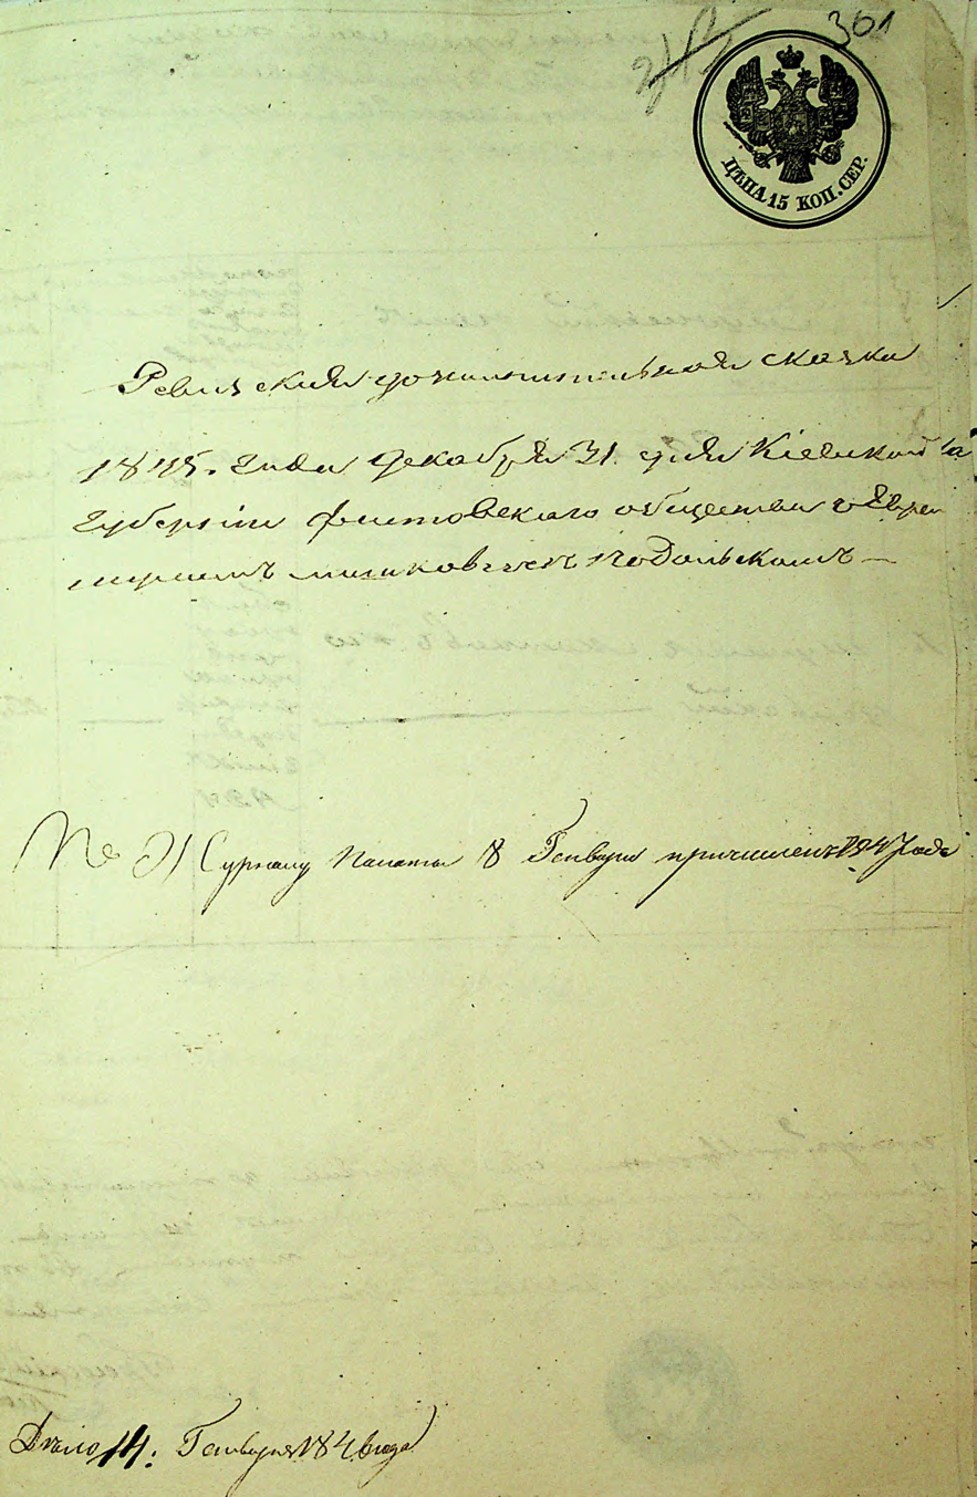 301
ЦѢНА 15 КОП. СЕР.
Ревизская дополнительная сказка
1845. года Декабря 31. дня Кіевской
Губерніи Фастовскаго общества о Евре
Подольскомъ —
По Журналу Палаты 8 Генваря причислен 1847 года
14. Генваря 1846 года